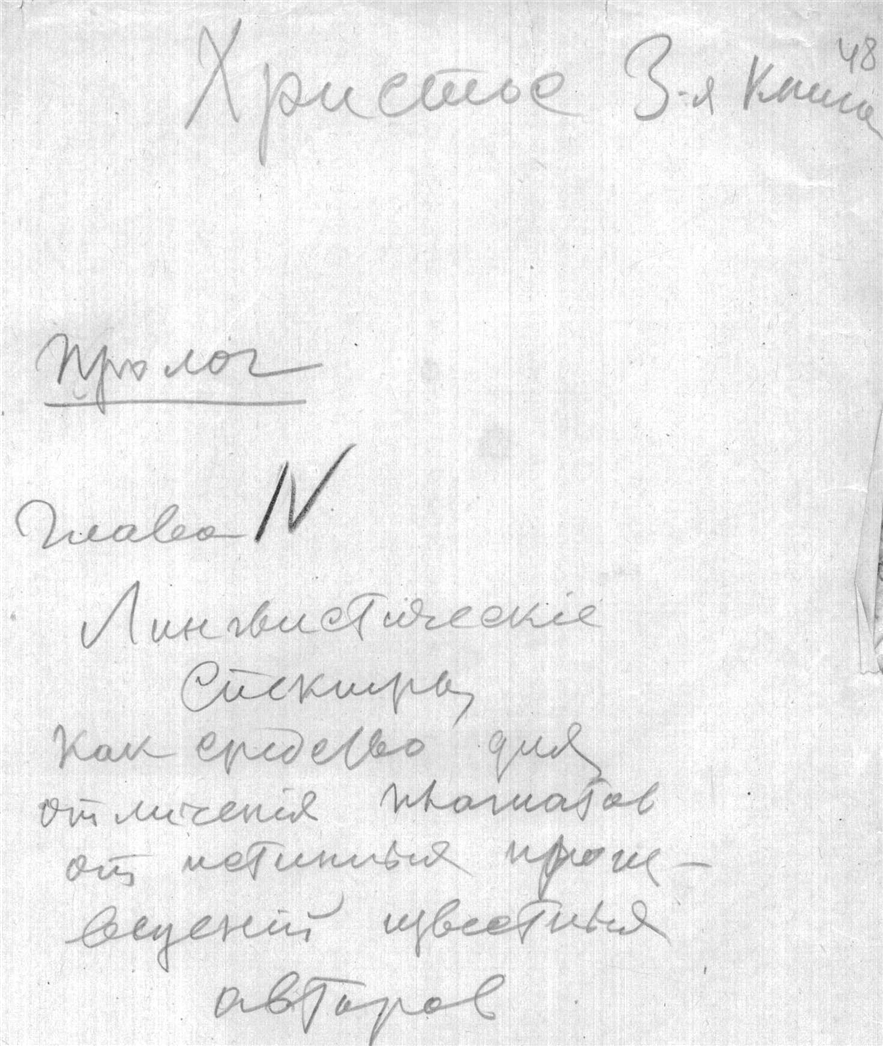 48
Христос 3-я Книга
Пролог
Глава IV
Лингвистическіе
Спектры,
как средство для
отличенія плагиатов
от истинныя произ-
веденій известныя
авторов